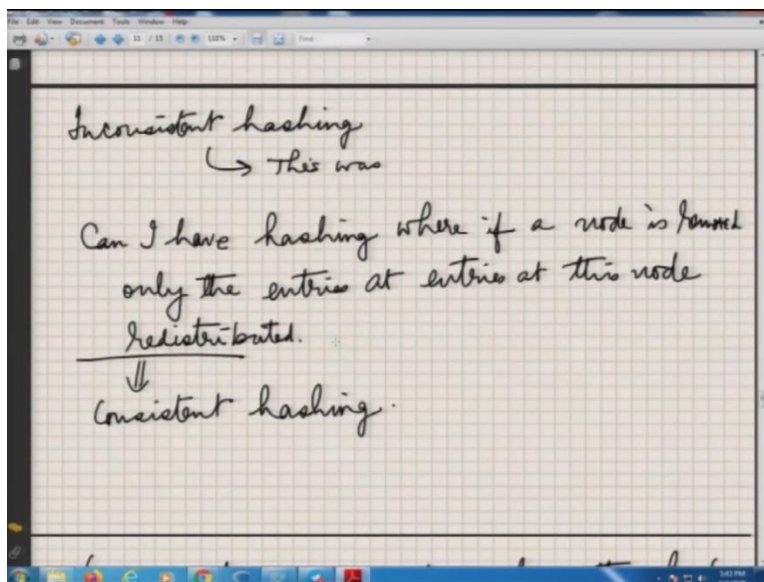 File Edit View Document Tools Window Help
11 / 15 110% Find
Inconsistent hashing
↳ This was
Can I have hashing where if a node is removed
only the entries at entries at this node
redistributed.
⇓
Consistent hashing.
5:43 PM